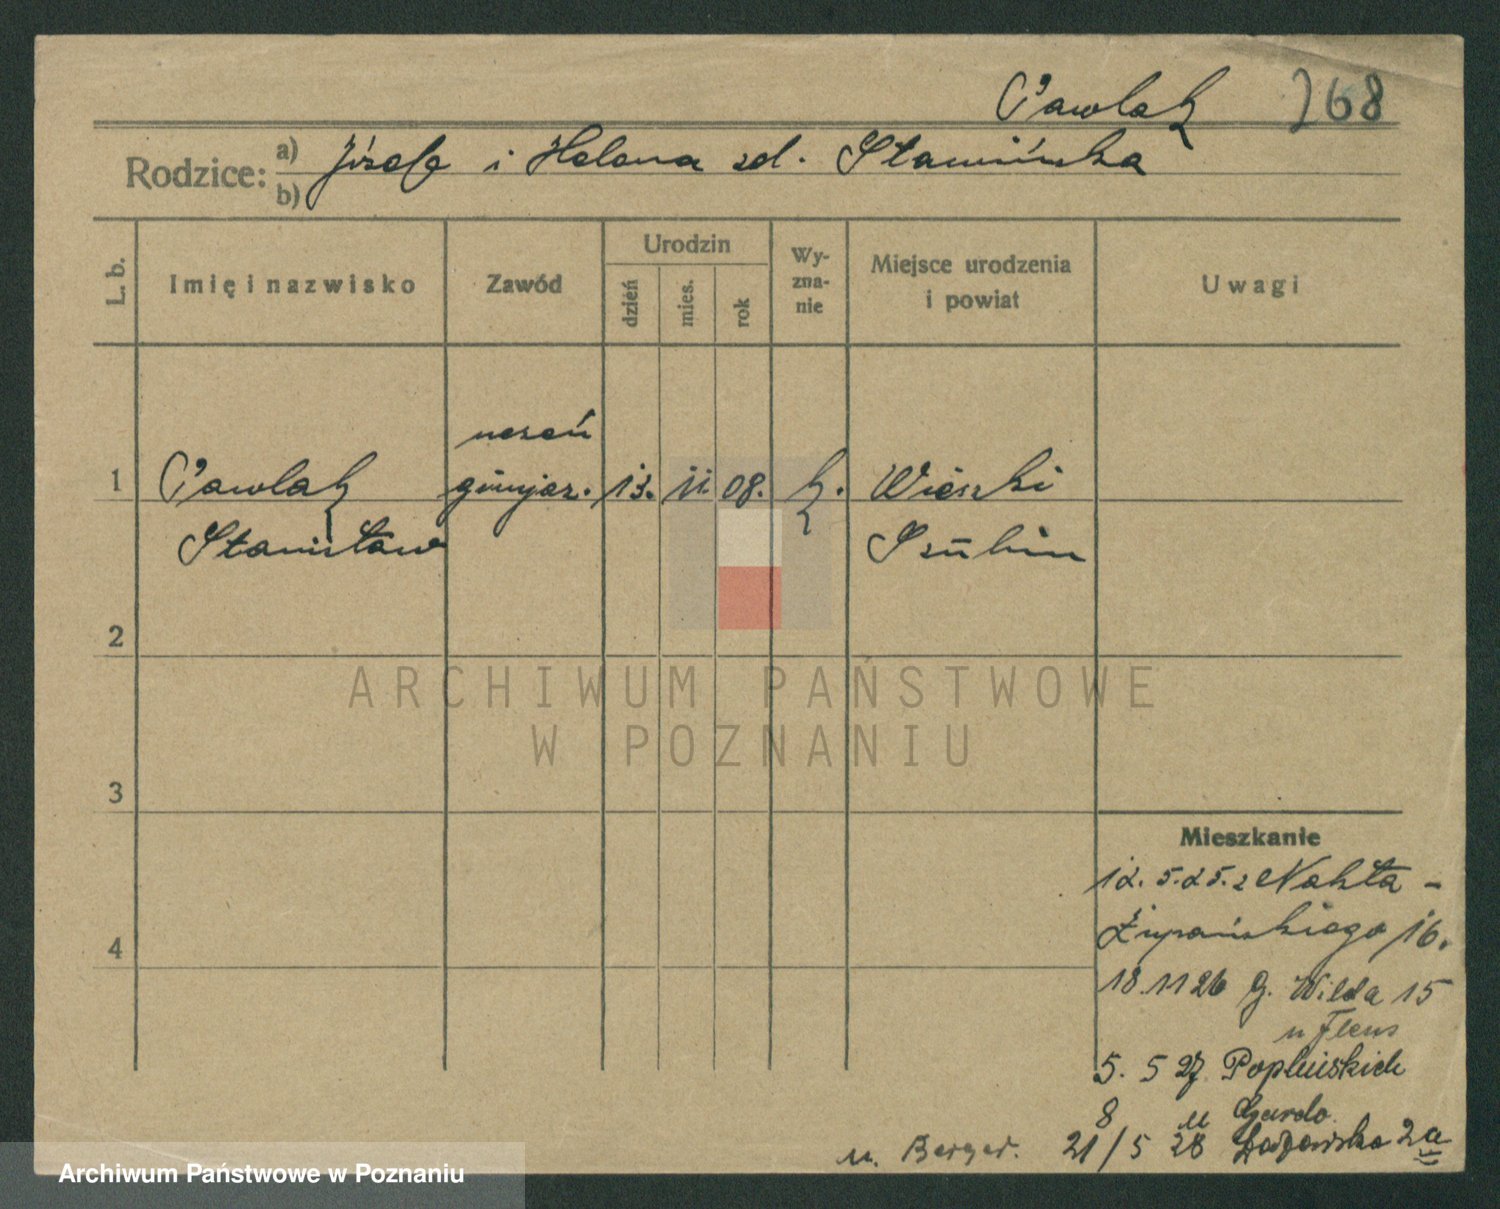 Pawlak 768
Rodzice: a) Józef i Helena zd. Sławińska
b)
L. b. Imię i nazwisko Zawód Urodzin dzień mies. rok Wy-zna-nie Miejsce urodzenia i powiat Uwagi
uczeń
1 Pawlak gimnjaz. 13. 11 08. k. Wieszki
Stanisław Szubin
2
ARCHIWUM PAŃSTWOWE
W POZNANIU
3
Mieszkanie
12. 5. 25. z Nakła -
4 Żupańskiego 16.
18.11 26 G. Wilda 15
u Flens
5. 5 27 Poplińskich
8 u
u. Berger. 21/5 28 2a
Archiwum Państwowe w Poznaniu